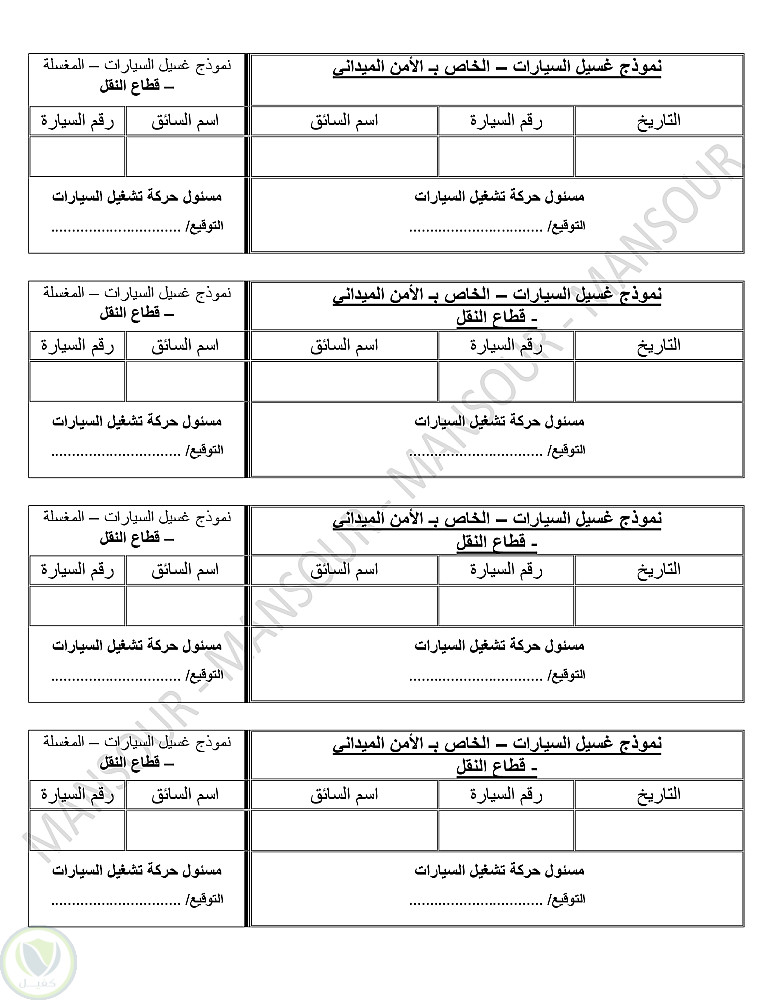 نموذج غسيل السيارات – الخاص بـ الأمن الميداني
التاريخ
رقم السيارة
اسم السائق
مسئول حركة تشغيل السيارات
التوقيع/ ................................
نموذج غسيل السيارات – المغسلة
– قطاع النقل
اسم السائق
رقم السيارة
مسئول حركة تشغيل السيارات
التوقيع/ ...............................
نموذج غسيل السيارات – الخاص بـ الأمن الميداني
- قطاع النقل
التاريخ
رقم السيارة
اسم السائق
مسئول حركة تشغيل السيارات
التوقيع/ ................................
نموذج غسيل السيارات – المغسلة
– قطاع النقل
اسم السائق
رقم السيارة
مسئول حركة تشغيل السيارات
التوقيع/ ...............................
نموذج غسيل السيارات – الخاص بـ الأمن الميداني
- قطاع النقل
التاريخ
رقم السيارة
اسم السائق
مسئول حركة تشغيل السيارات
التوقيع/ ................................
نموذج غسيل السيارات – المغسلة
– قطاع النقل
اسم السائق
رقم السيارة
مسئول حركة تشغيل السيارات
التوقيع/ ...............................
نموذج غسيل السيارات – الخاص بـ الأمن الميداني
- قطاع النقل
التاريخ
رقم السيارة
اسم السائق
مسئول حركة تشغيل السيارات
التوقيع/ ................................
نموذج غسيل السيارات – المغسلة
– قطاع النقل
اسم السائق
رقم السيارة
مسئول حركة تشغيل السيارات
التوقيع/ ...............................
MANSOUR - MANSOUR - MANSOUR - MANSOUR
كفيل